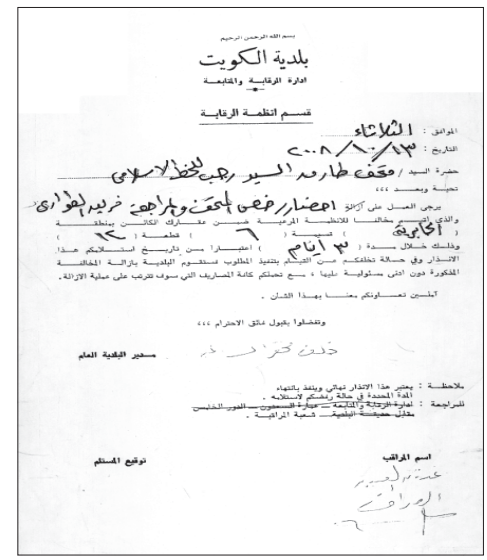 بسم الله الرحمن الرحيم
بلدية الكويت
ادارة الرقابة والمتابعة
قسم انظمة الرقابة
الموافق : الثلاثاء
التاريخ : ١٣ / ١٠ / ٢٠٠٨
حضرة السيد / متحف طارق السيد رجب للخط الاسلامي
تحية وبعد ،،،
يرجى العمل على ازالة احضار رخص المتحف والمراجعة
والذي اقيم مخالفا للانظمة المرعية ضمن عقارك الكائن بمنطقة
( الجابرية ) قسيمة ( ٦ ) قطعة ( ١٢ )
وذلك خلال مدة ( ٣ ايام ) اعتبارا من تاريخ استلامكم هذا
الانذار وفي حالة تخلفكم عن القيام بتنفيذ المطلوب ستقوم البلدية بازالة المخالفة
المذكورة دون ادنى مسئولية عليها ، مع تحملكم كافة المصاريف التي سوف تترتب على عملية الازالة.
آملين تعاونكم معنا بهذا الشأن .
وتفضلوا بقبول فائق الاحترام ،،،
مدير البلدية العام
ملاحظة : يعتبر هذا الانذار نهائي وينفذ بانتهاء
المدة المحددة في حالة رفضكم لاستلامه .
للمراجعة : ادارة الرقابة والمتابعة – عمارة السعدون – الدور الخامس
مقابل حديقة البلدية – شعبة المراقبة .
اسم المراقب
توقيع المستلم